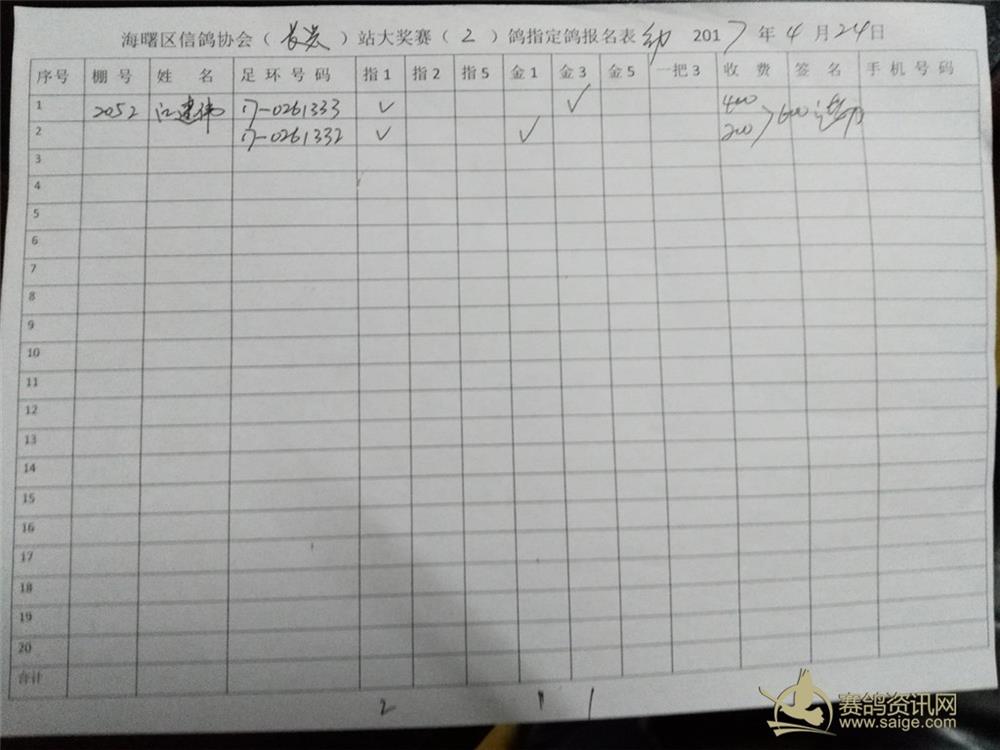 海曙区信鸽协会（长兴）站大奖赛（2）鸽指定鸽报名表 幼 2017年4月24日
序号 棚号 姓 名 足环号码 指1 指2 指5 金1 金3 金5 一把3 收 费 签 名 手机号码
1 2052 江建伟 17-0261333 ✓ ✓ 400
2 17-0261332 ✓ ✓ 200 600
3
4
5
6
7
8
9
10
11
12
13
14
15
16
17
18
19
20
合计
2 1 1
赛鸽资讯网
www.saige.com